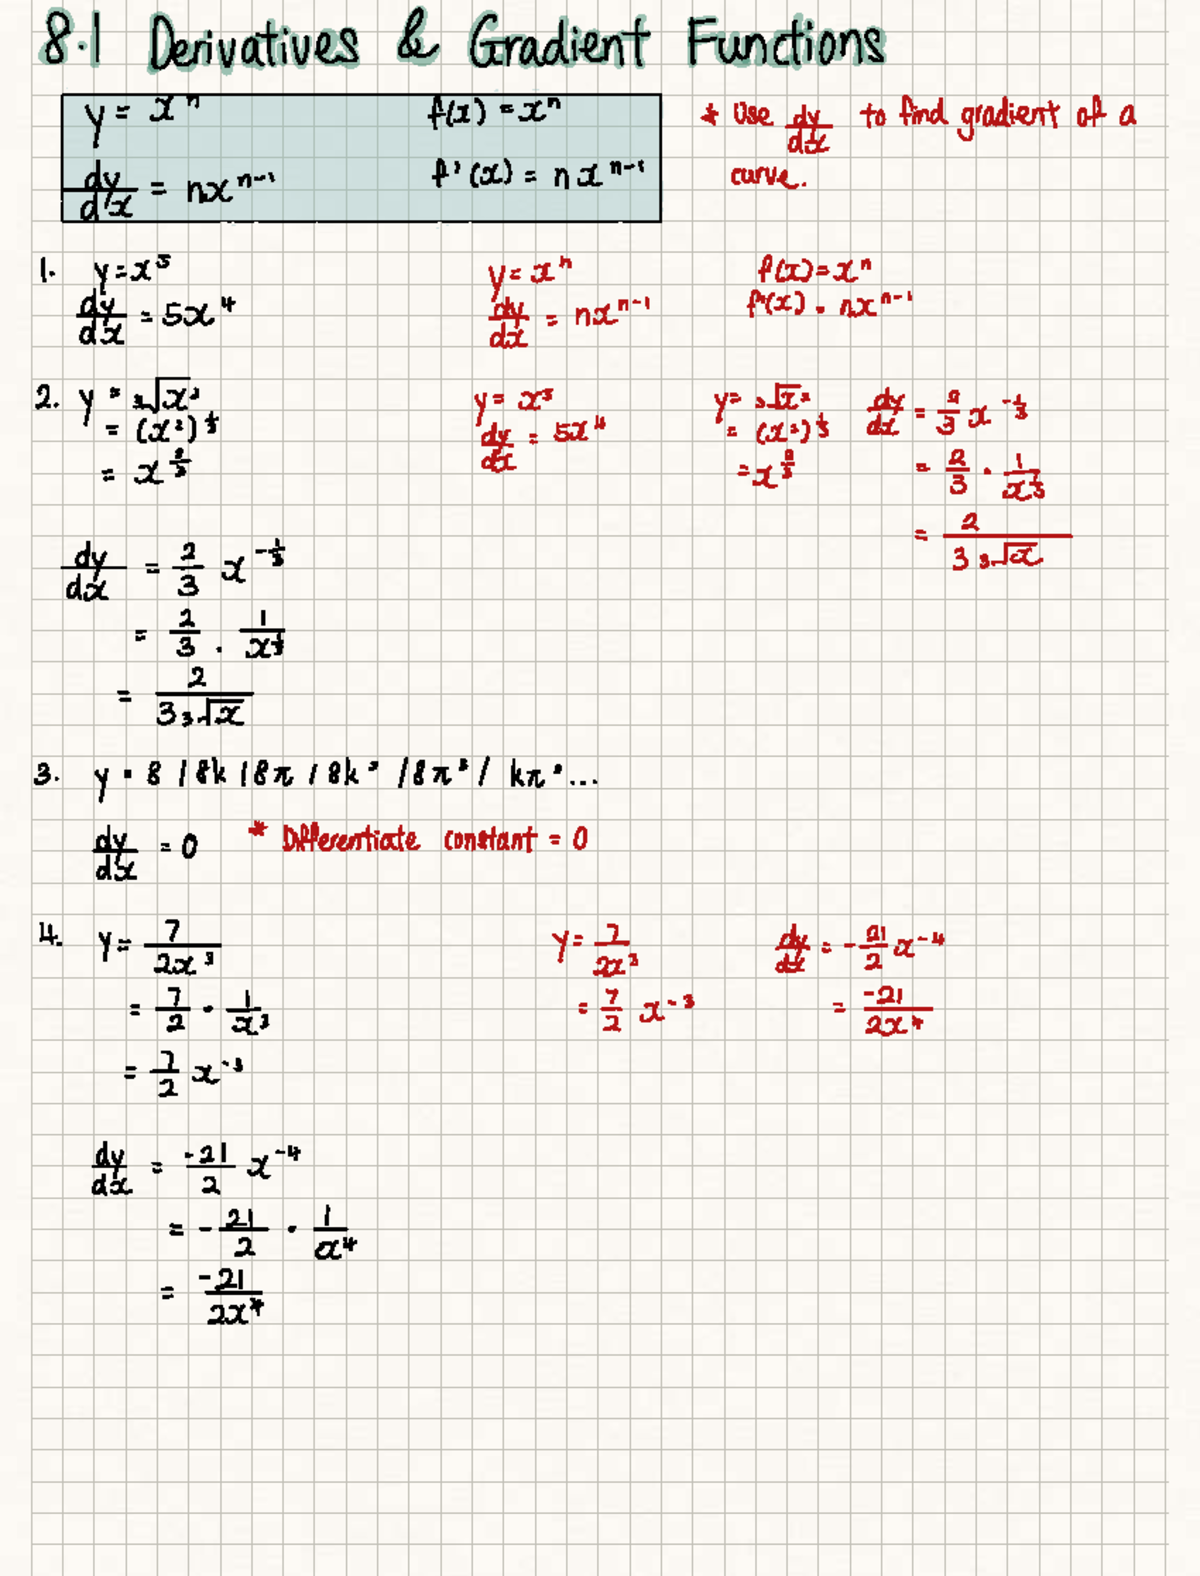 8.1 Derivatives & Gradient Functions
y = xⁿ f(x) = xⁿ
dy/dx = nxⁿ⁻¹ f'(x) = nxⁿ⁻¹
* Use dy/dx to find gradient of a
curve.
1. y = x⁵
dy/dx = 5x⁴
y = xⁿ
dy/dx = nxⁿ⁻¹
f(x) = xⁿ
f'(x) = nxⁿ⁻¹
2. y = ³√x²
= (x²)^(1/3)
= x^(2/3)
dy/dx = 2/3 x^(-1/3)
= 2/3 · 1/x^(1/3)
= 2/(3 ³√x)
y = x⁵
dy/dx = 5x⁴
y = ³√x²
= (x²)^(1/3)
= x^(2/3)
dy/dx = 2/3 x^(-1/3)
= 2/3 · 1/x^(1/3)
= 2/(3 ³√x)
3. y = 8 / 8k / 8π / 8k² / 8π² / kπ²...
dy/dx = 0 * Differentiate constant = 0
4. y = 7/(2x³)
= 7/2 · 1/x³
= 7/2 x⁻³
dy/dx = -21/2 x⁻⁴
= -21/2 · 1/x⁴
= -21/(2x⁴)
y = 7/(2x³)
= 7/2 x⁻³
dy/dx = -21/2 x⁻⁴
= -21/(2x⁴)